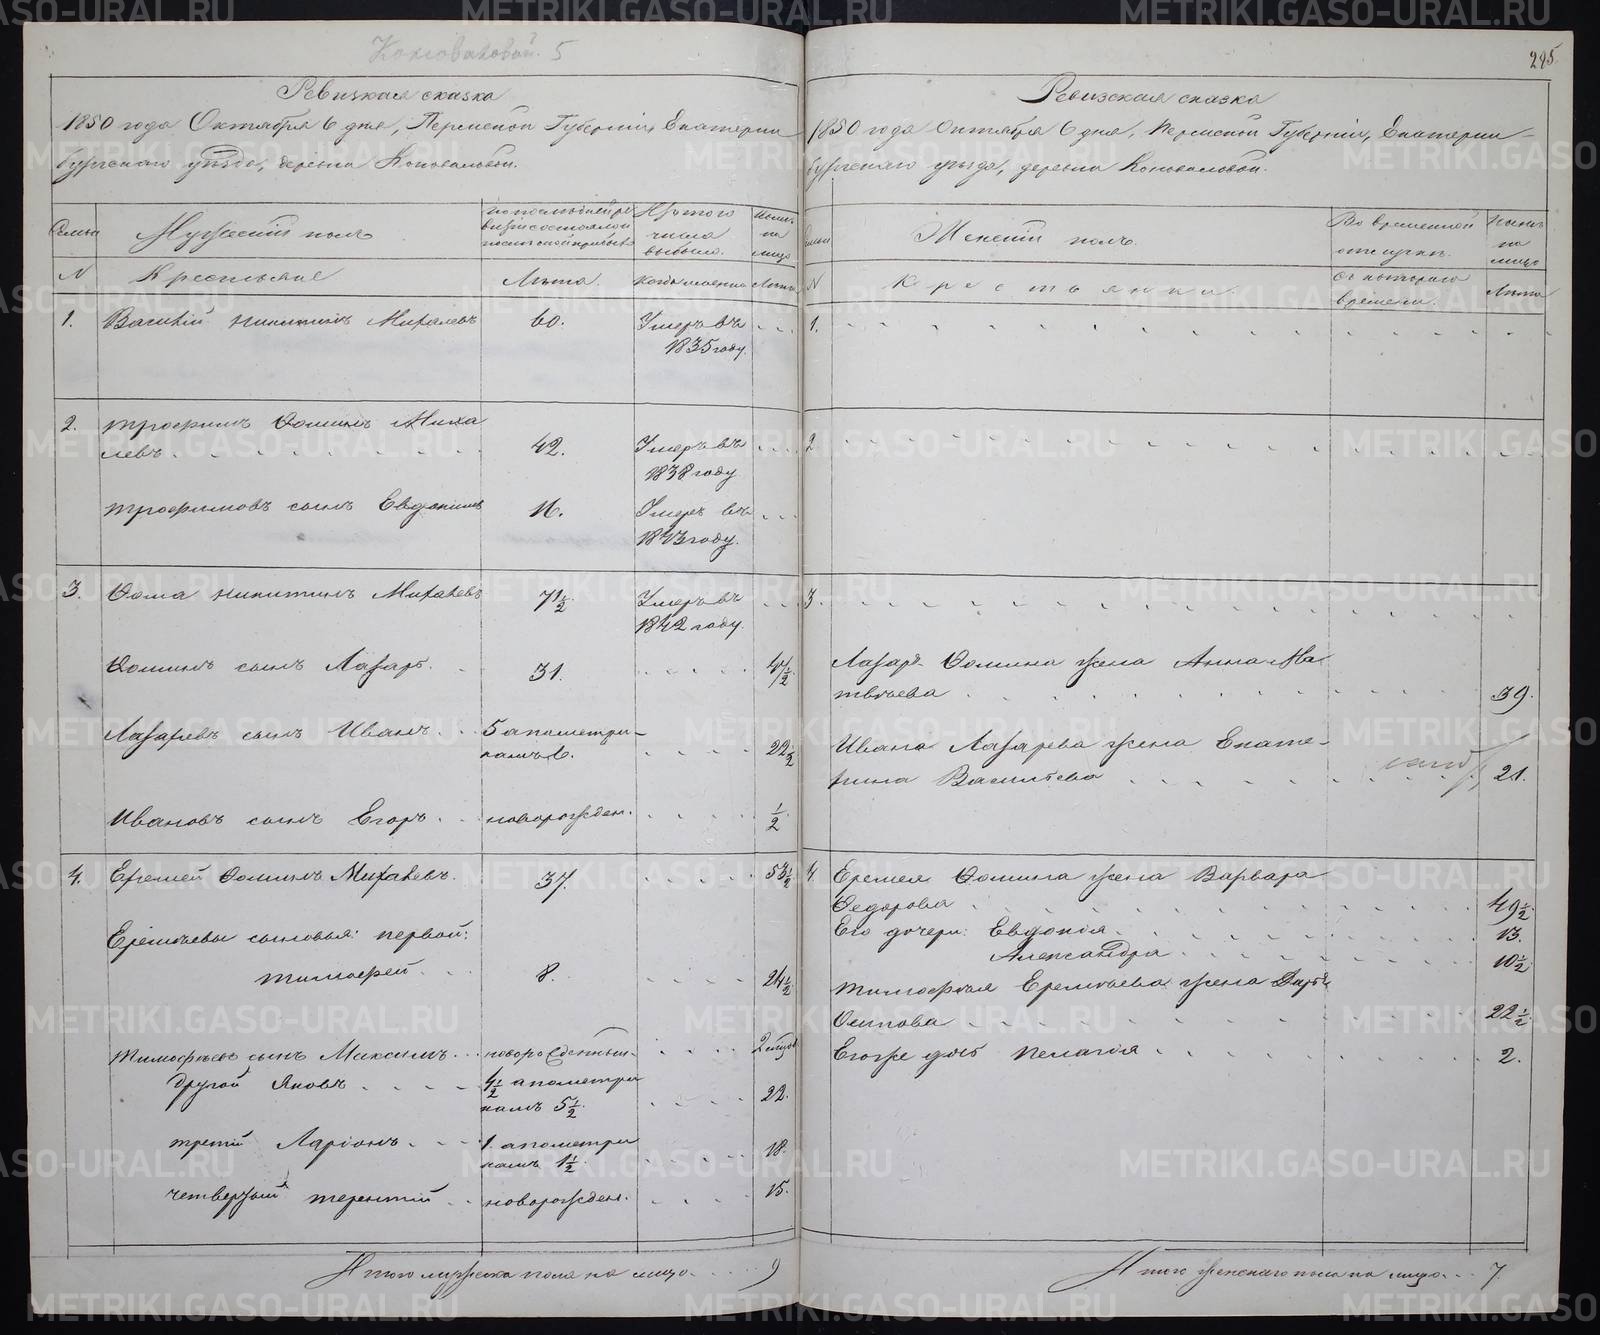 Коноваловой. 5
Ревизкая сказка
1850 года Октября 6 дня, Пермской Губерніи, Екатерин
бургскаго уѣзда, деревни Коноваловой.
Семьи
Мужескій полъ
по последней ре
визіи состояло и
после того прибыло
Изъ того
числа
выбыло.
Ныне
на
лицо
N
Крестьяне
Лѣта.
когда именно
Лѣта
1. Василій Никитинъ Михалевъ
60.
Умеръ въ
1835 году.
2. Трофимъ Фоминъ Миха
левъ
42.
Умеръ въ
1838 году
Трофимовъ сынъ Евдокимъ
16.
Умеръ въ
1843 году.
3. Фома Никитинъ Михалевъ
71½
Умеръ въ
1842 году.
Фоминъ сынъ Лазарь.
31.
47½
Лазаревъ сынъ Иванъ.
5 а пометри-
камъ 6.
22½
Ивановъ сынъ Егоръ.
новорожден.
½
4. Еремей Фоминъ Михалевъ.
37.
53½
Еремѣевы сыновья: первой:
Тимофей
8.
24½
Тимофѣевъ сынъ Максимъ
новорожденный
2 мѣсяц
другой Яковъ
4½ а пометри
камъ 5½.
22.
третій Ларіонъ
1. а пометри
камъ 1½.
18.
четвертый Терентій
новорожден.
15.
Итого мужеска пола на лицо 9
295.
Ревизская сказка
1850 года Октября 6 дня, Пермской Губерніи, Екатерин-
бургскаго уѣзда, деревни Коноваловой.
Семьи
Женскій полъ.
Во временной
отлучкѣ.
Нынѣ
на
лицо
N
Крестьянки.
съ котораго
времени.
Лѣта
1.
2
3.
Лазаря Фомина жена Анна Ма
твѣева 39.
Ивана Лазарева жена Екате-
рина Васильева 21.
4 Еремея Фомина жена Варвара
Федорова 49½
Его дочери: Евдокія 13.
Александра 10½
Тимофѣя Еремѣева жена Дарья
Осипова 22½
Егоже дочь Пелагія 2.
Итого женскаго пола на лицо 7.
METRIKI.GASO-URAL.RU